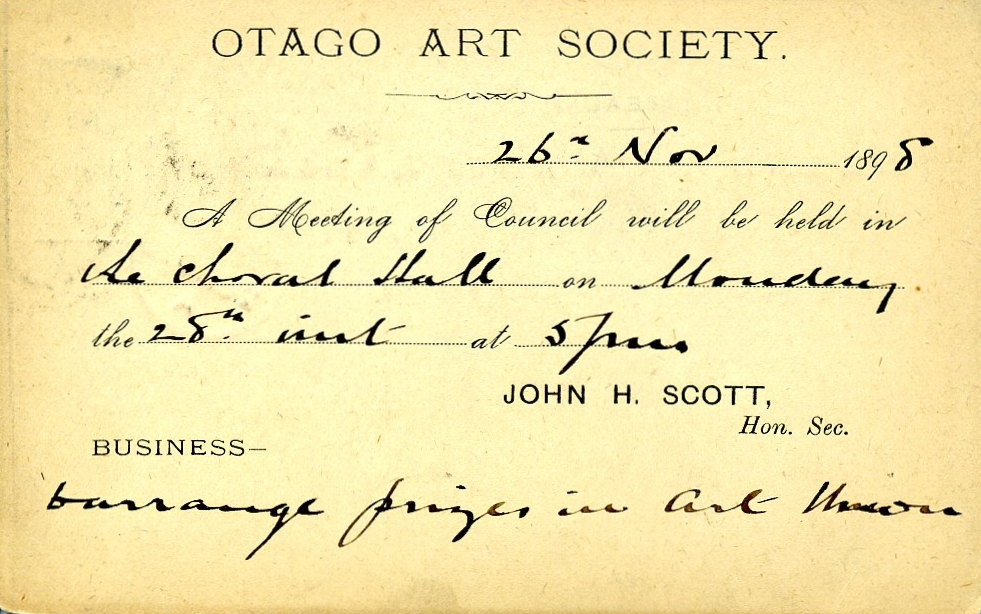 OTAGO ART SOCIETY.
26th Nov 1898
A Meeting of Council will be held in
the Choral Hall on Monday
the 28th inst at 5 pm
JOHN H. SCOTT,
Hon. Sec.
BUSINESS—
to arrange prizes in Art Union